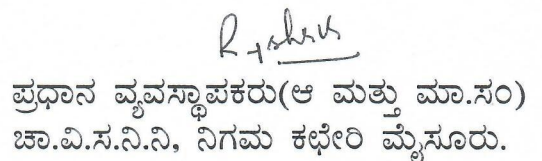 ಪ್ರಧಾನ ವ್ಯವಸ್ಥಾಪಕರು(ಆ ಮತ್ತು ಮಾ.ಸಂ)
ಚಾ.ವಿ.ಸ.ನಿ.ನಿ, ನಿಗಮ ಕಛೇರಿ ಮೈಸೂರು.